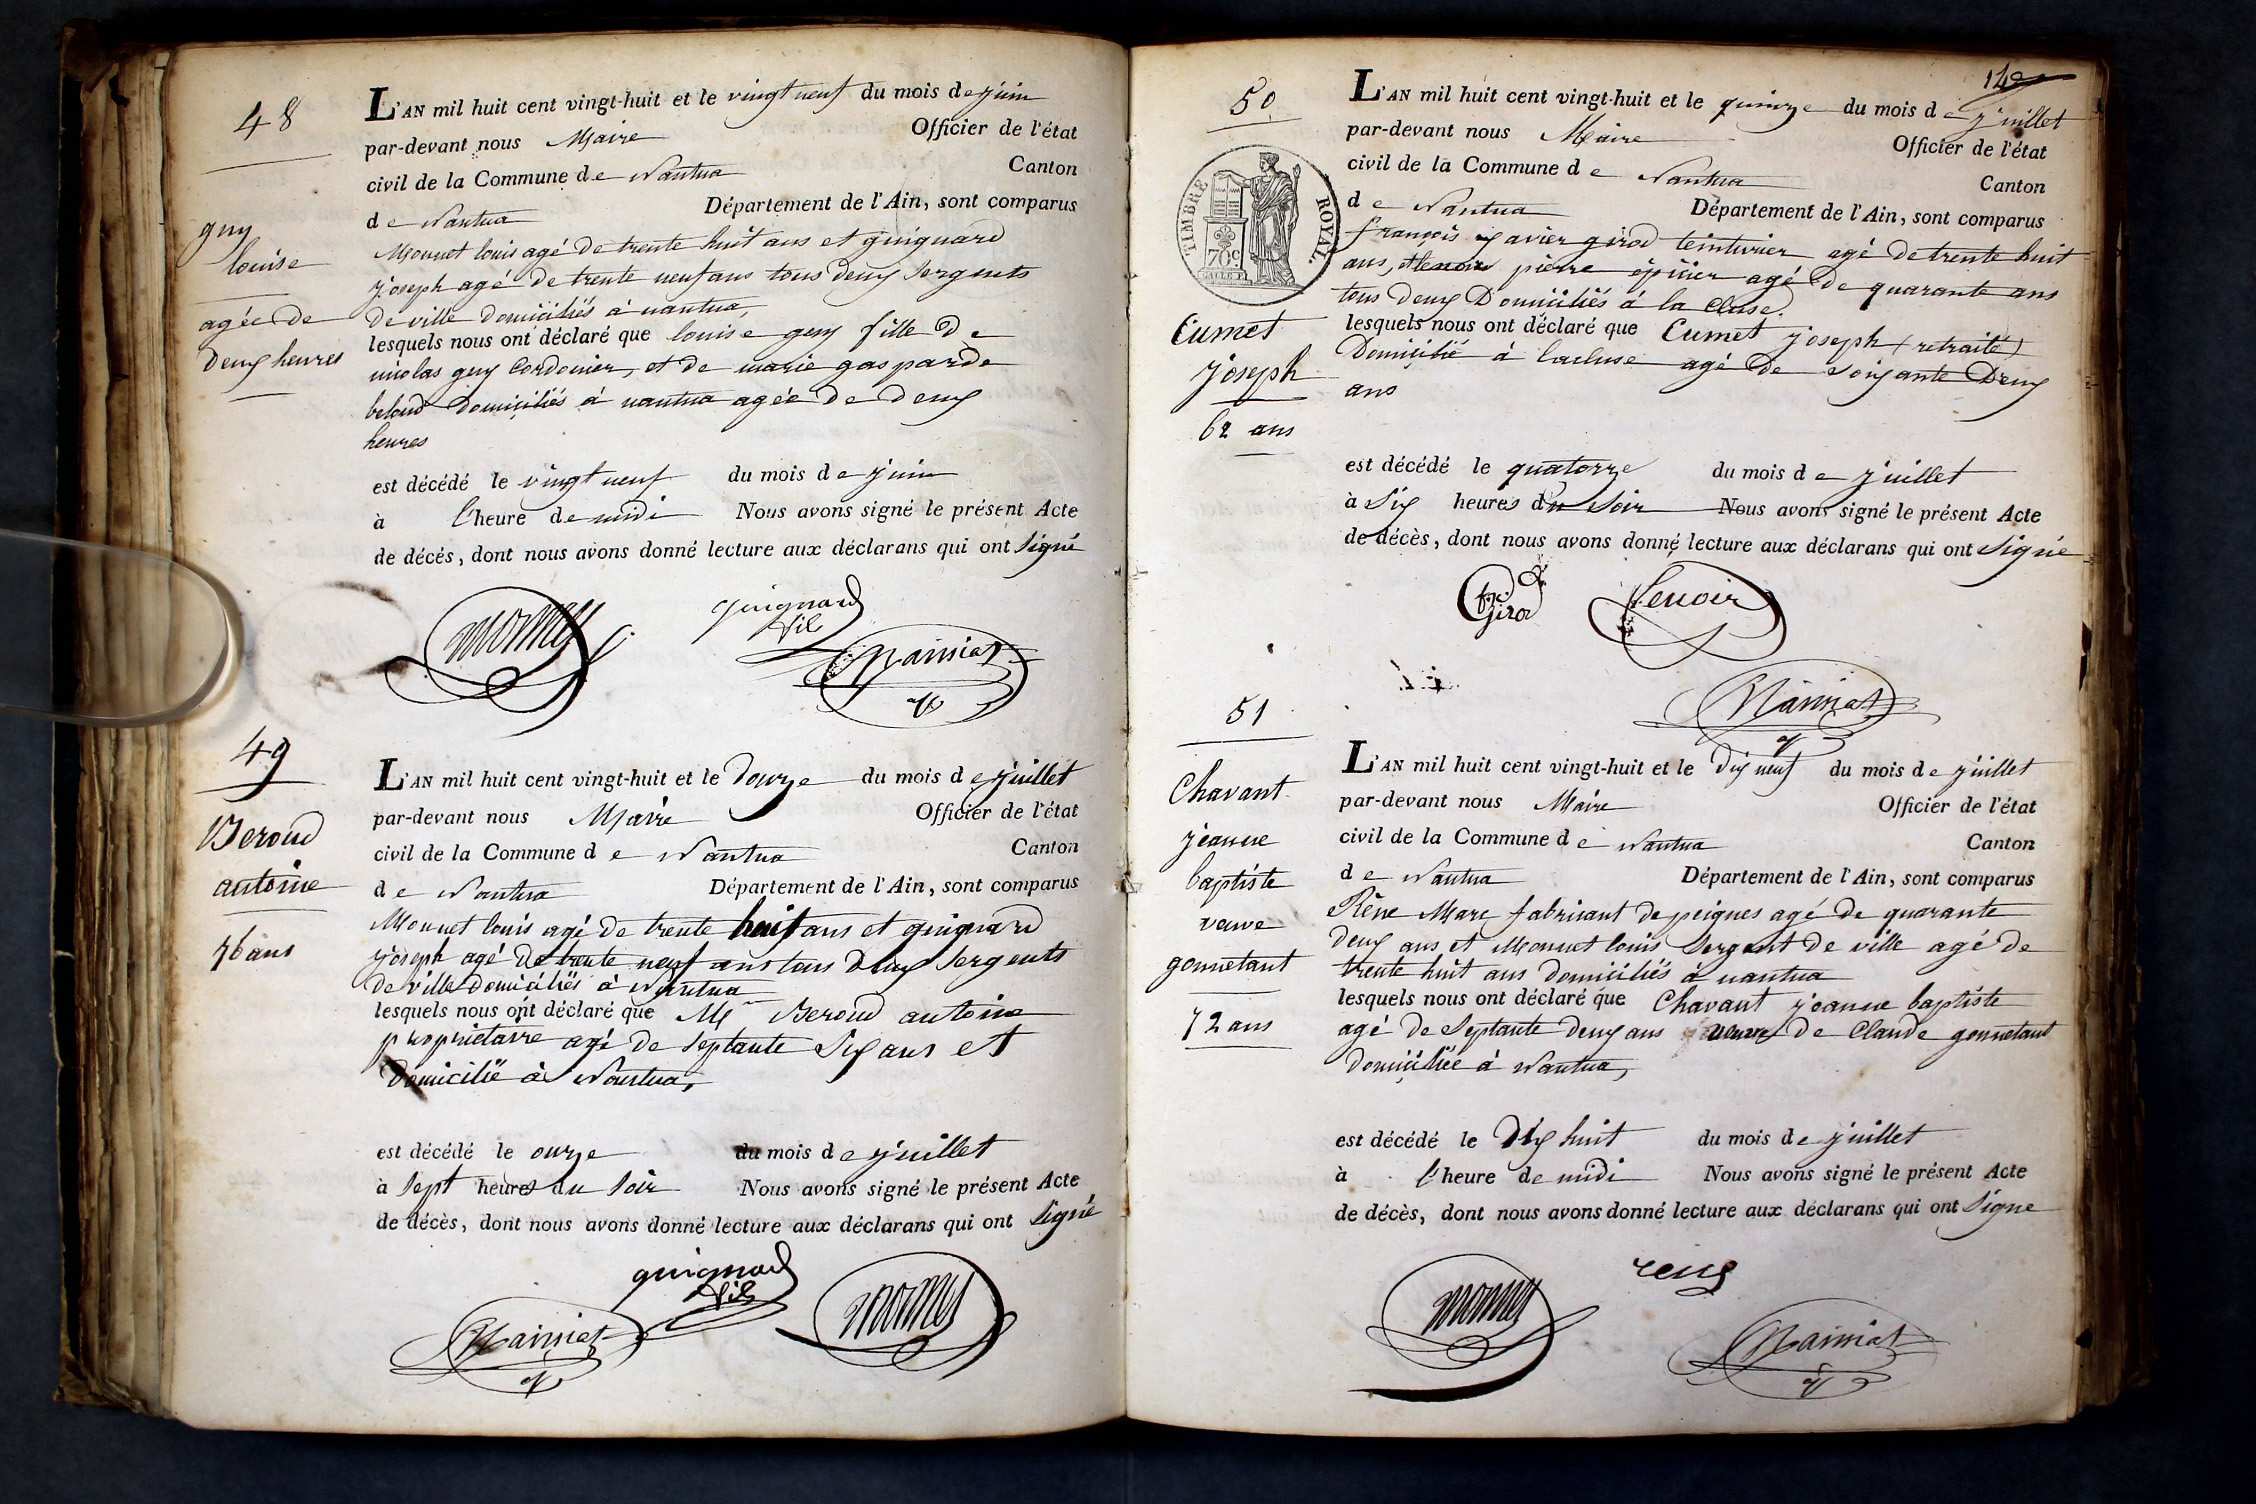 48
guy
louise
agée de
deux heures
L'AN mil huit cent vingt-huit et le vingt neuf du mois de juin
par-devant nous Maire Officier de l'état
civil de la Commune de Nantua Canton
de Nantua Département de l'Ain, sont comparus
Monnet louis agé de trente huit ans et guignard
joseph agé de trente neuf ans tous deux sergents
de ville domiciliés à nantua,
lesquels nous ont déclaré que louise guy fille de
nicolas guy Cordonier, et de marie gasparde
beloud domiciliés à nantua agée de deux
heures
est décédé le vingt neuf du mois de juin
à l'heure de midi Nous avons signé le présent Acte
de décès, dont nous avons donné lecture aux déclarans qui ont signé
monnet
guignard
fils
49
Beroud
antoine
76 ans
L'AN mil huit cent vingt-huit et le douze du mois de juillet
par-devant nous Maire Officier de l'état
civil de la Commune de Nantua Canton
de Nantua Département de l'Ain, sont comparus
Monnet louis agé de trente huit ans et guignard
joseph agé de trente neuf ans tous deux sergents
de ville domiciliés à Nantua
lesquels nous ont déclaré que Mr Beroud antoine
proprietaire agé de septante six ans et
domicilié à Nantua,
est décédé le onze du mois de juillet
à sept heures du soir Nous avons signé le présent Acte
de décès, dont nous avons donné lecture aux déclarans qui ont signé
guignard
fils
monnet
50
TIMBRE ROYAL.
70c
Cumet
joseph
62 ans
L'AN mil huit cent vingt-huit et le quinze du mois de juillet
par-devant nous Maire Officier de l'état
civil de la Commune de Nantua Canton
de Nantua Département de l'Ain, sont comparus
françois xavier girod teinturier agé de trente huit
ans, et lenoir pierre épicier agé de quarante ans
tous deux Domiciliés à la Cluse.
lesquels nous ont déclaré que Cumet joseph (retraité)
Domicilié à lacluse agé de soixante Deux
ans
est décédé le quatorze du mois de juillet
à six heures du soir Nous avons signé le présent Acte
de décès, dont nous avons donné lecture aux déclarans qui ont signé
fx
girod
Lenoir
51
Chavant
jeanne
baptiste
veuve
gonnetant
72 ans
L'AN mil huit cent vingt-huit et le dix neuf du mois de juillet
par-devant nous Maire Officier de l'état
civil de la Commune de Nantua Canton
de Nantua Département de l'Ain, sont comparus
Rène Marc fabricant de peignes agé de quarante
deux ans et Monnet louis sergent de ville agé de
trente huit ans domiciliés à nantua
lesquels nous ont déclaré que Chavant jeanne baptiste
agé de septante deux ans veuve de Claude gonnetant
domiciliée à Nantua,
est décédé le dix huit du mois de juillet
à l'heure de midi Nous avons signé le présent Acte
de décès, dont nous avons donné lecture aux déclarans qui ont signe
monnet